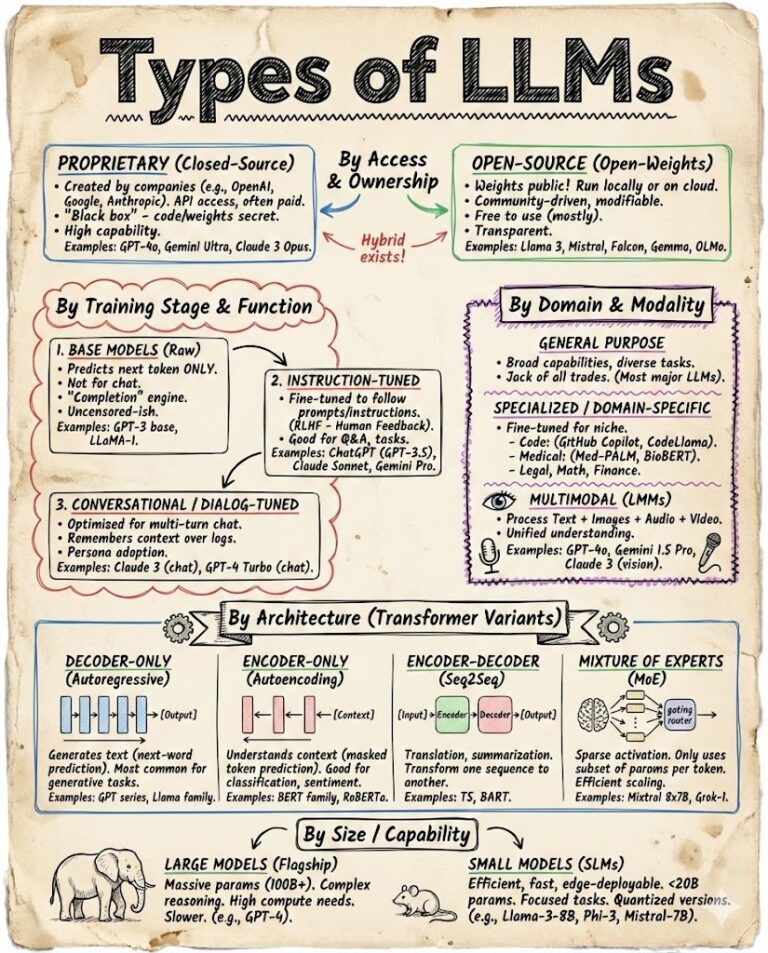 Types of LLMs
PROPRIETARY (Closed-Source)
• Created by companies (e.g., OpenAI,
Google, Anthropic). API access, often paid.
• "Black box" – code/weights secret.
• High capability.
Examples: GPT-4o, Gemini Ultra, Claude 3 Opus.
By Access
& Ownership
Hybrid
exists!
OPEN-SOURCE (Open-Weights)
• Weights public! Run locally or on cloud.
• Community-driven, modifiable.
• Free to use (mostly).
• Transparent.
Examples: Llama 3, Mistral, Falcon, Gemma, OLMo.
By Training Stage & Function
1. BASE MODELS (Raw)
• Predicts next token ONLY.
• Not for chat.
• "Completion" engine.
• Uncensored-ish.
Examples: GPT-3 base,
LLaMA-1.
2. INSTRUCTION-TUNED
• Fine-tuned to follow
prompts/instructions.
(RLHF - Human Feedback).
• Good for Q&A, tasks.
Examples: ChatGPT (GPT-3.5),
Claude Sonnet, Gemini Pro.
3. CONVERSATIONAL / DIALOG-TUNED
• Optimised for multi-turn chat.
• Remembers context over logs.
• Persona adoption.
Examples: Claude 3 (chat), GPT-4 Turbo (chat).
By Domain & Modality
GENERAL PURPOSE
• Broad capabilities, diverse tasks.
• Jack of all trades. (Most major LLMs).
SPECIALIZED / DOMAIN-SPECIFIC
• Fine-tuned for niche.
– Code: (GitHub Copilot, CodeLlama).
– Medical: (Med-PALM, BioBERT).
– Legal, Math, Finance.
MULTIMODAL (LMMs)
• Process Text + Images + Audio + Video.
• Unified understanding.
• Examples: GPT-4o, Gemini 1.5 Pro,
Claude 3 (vision).
By Architecture (Transformer Variants)
DECODER-ONLY
(Autoregressive)
→[Output]
Generates text (next-word
prediction). Most common for
generative tasks.
Examples: GPT series, Llama family.
ENCODER-ONLY
(Autoencoding)
[Context]
Understands context (masked
token prediction). Good for
classification, sentiment.
Examples: BERT family, RoBERTa.
ENCODER-DECODER
(Seq2Seq)
[Input]→ Encoder → Decoder →[Output]
Translation, summarization.
Transform one sequence to
another.
Examples: T5, BART.
MIXTURE OF EXPERTS
(MoE)
gating
router
Sparse activation. Only uses
subset of params per token.
Efficient scaling.
Examples: Mixtral 8x7B, Grok-1.
By Size / Capability
LARGE MODELS (Flagship)
Massive params (100B+). Complex
reasoning. High compute needs.
Slower. (e.g., GPT-4).
SMALL MODELS (SLMs)
Efficient, fast, edge-deployable. <20B
params. Focused tasks. Quantized versions.
(e.g., Llama-3-8B, Phi-3, Mistral-7B).